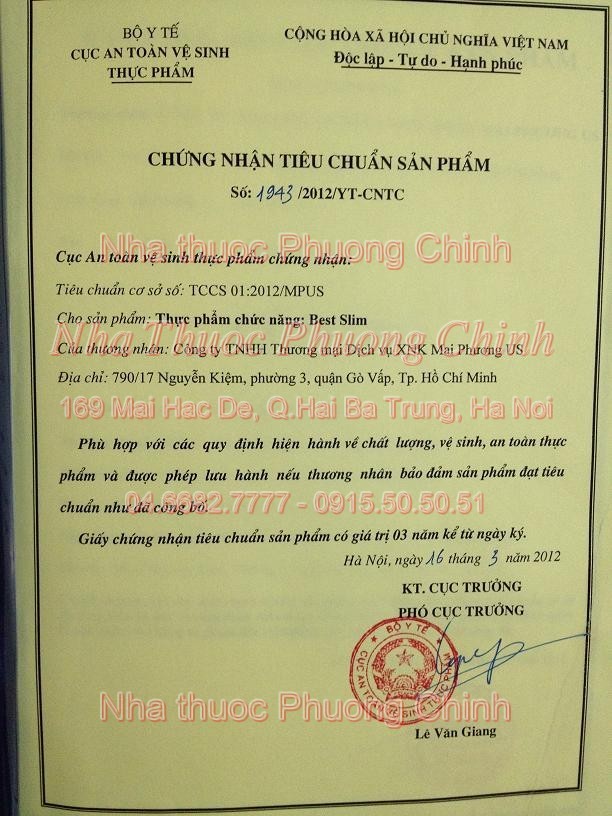 BỘ Y TẾ
CỤC AN TOÀN VỆ SINH
THỰC PHẨM
CỘNG HÒA XÃ HỘI CHỦ NGHĨA VIỆT NAM
Độc lập - Tự do - Hạnh phúc
CHỨNG NHẬN TIÊU CHUẨN SẢN PHẨM
Số: 1943 /2012/YT-CNTC
Nha thuoc Phuong Chinh
Cục An toàn vệ sinh thực phẩm chứng nhận:
Tiêu chuẩn cơ sở số: TCCS 01:2012/MPUS
Cho sản phẩm: Thực phẩm chức năng: Best Slim
Nha Thuoc Phuong Chinh
Của thương nhân: Công ty TNHH Thương mại Dịch vụ XNK Mai Phương US
Địa chỉ: 790/17 Nguyễn Kiệm, phường 3, quận Gò Vấp, Tp. Hồ Chí Minh
169 Mai Hac De, Q.Hai Ba Trung, Ha Noi
Phù hợp với các quy định hiện hành về chất lượng, vệ sinh, an toàn thực
phẩm và được phép lưu hành nếu thương nhân bảo đảm sản phẩm đạt tiêu
chuẩn như đã công bố.
04.6682.7777 - 0915.50.50.51
Giấy chứng nhận tiêu chuẩn sản phẩm có giá trị 03 năm kể từ ngày ký.
Hà Nội, ngày 16 tháng 3 năm 2012
KT. CỤC TRƯỞNG
PHÓ CỤC TRƯỞNG
BỘ Y TẾ
CỤC AN TOÀN VỆ SINH THỰC PHẨM
Nha thuoc Phuong Chinh
Lê Văn Giang